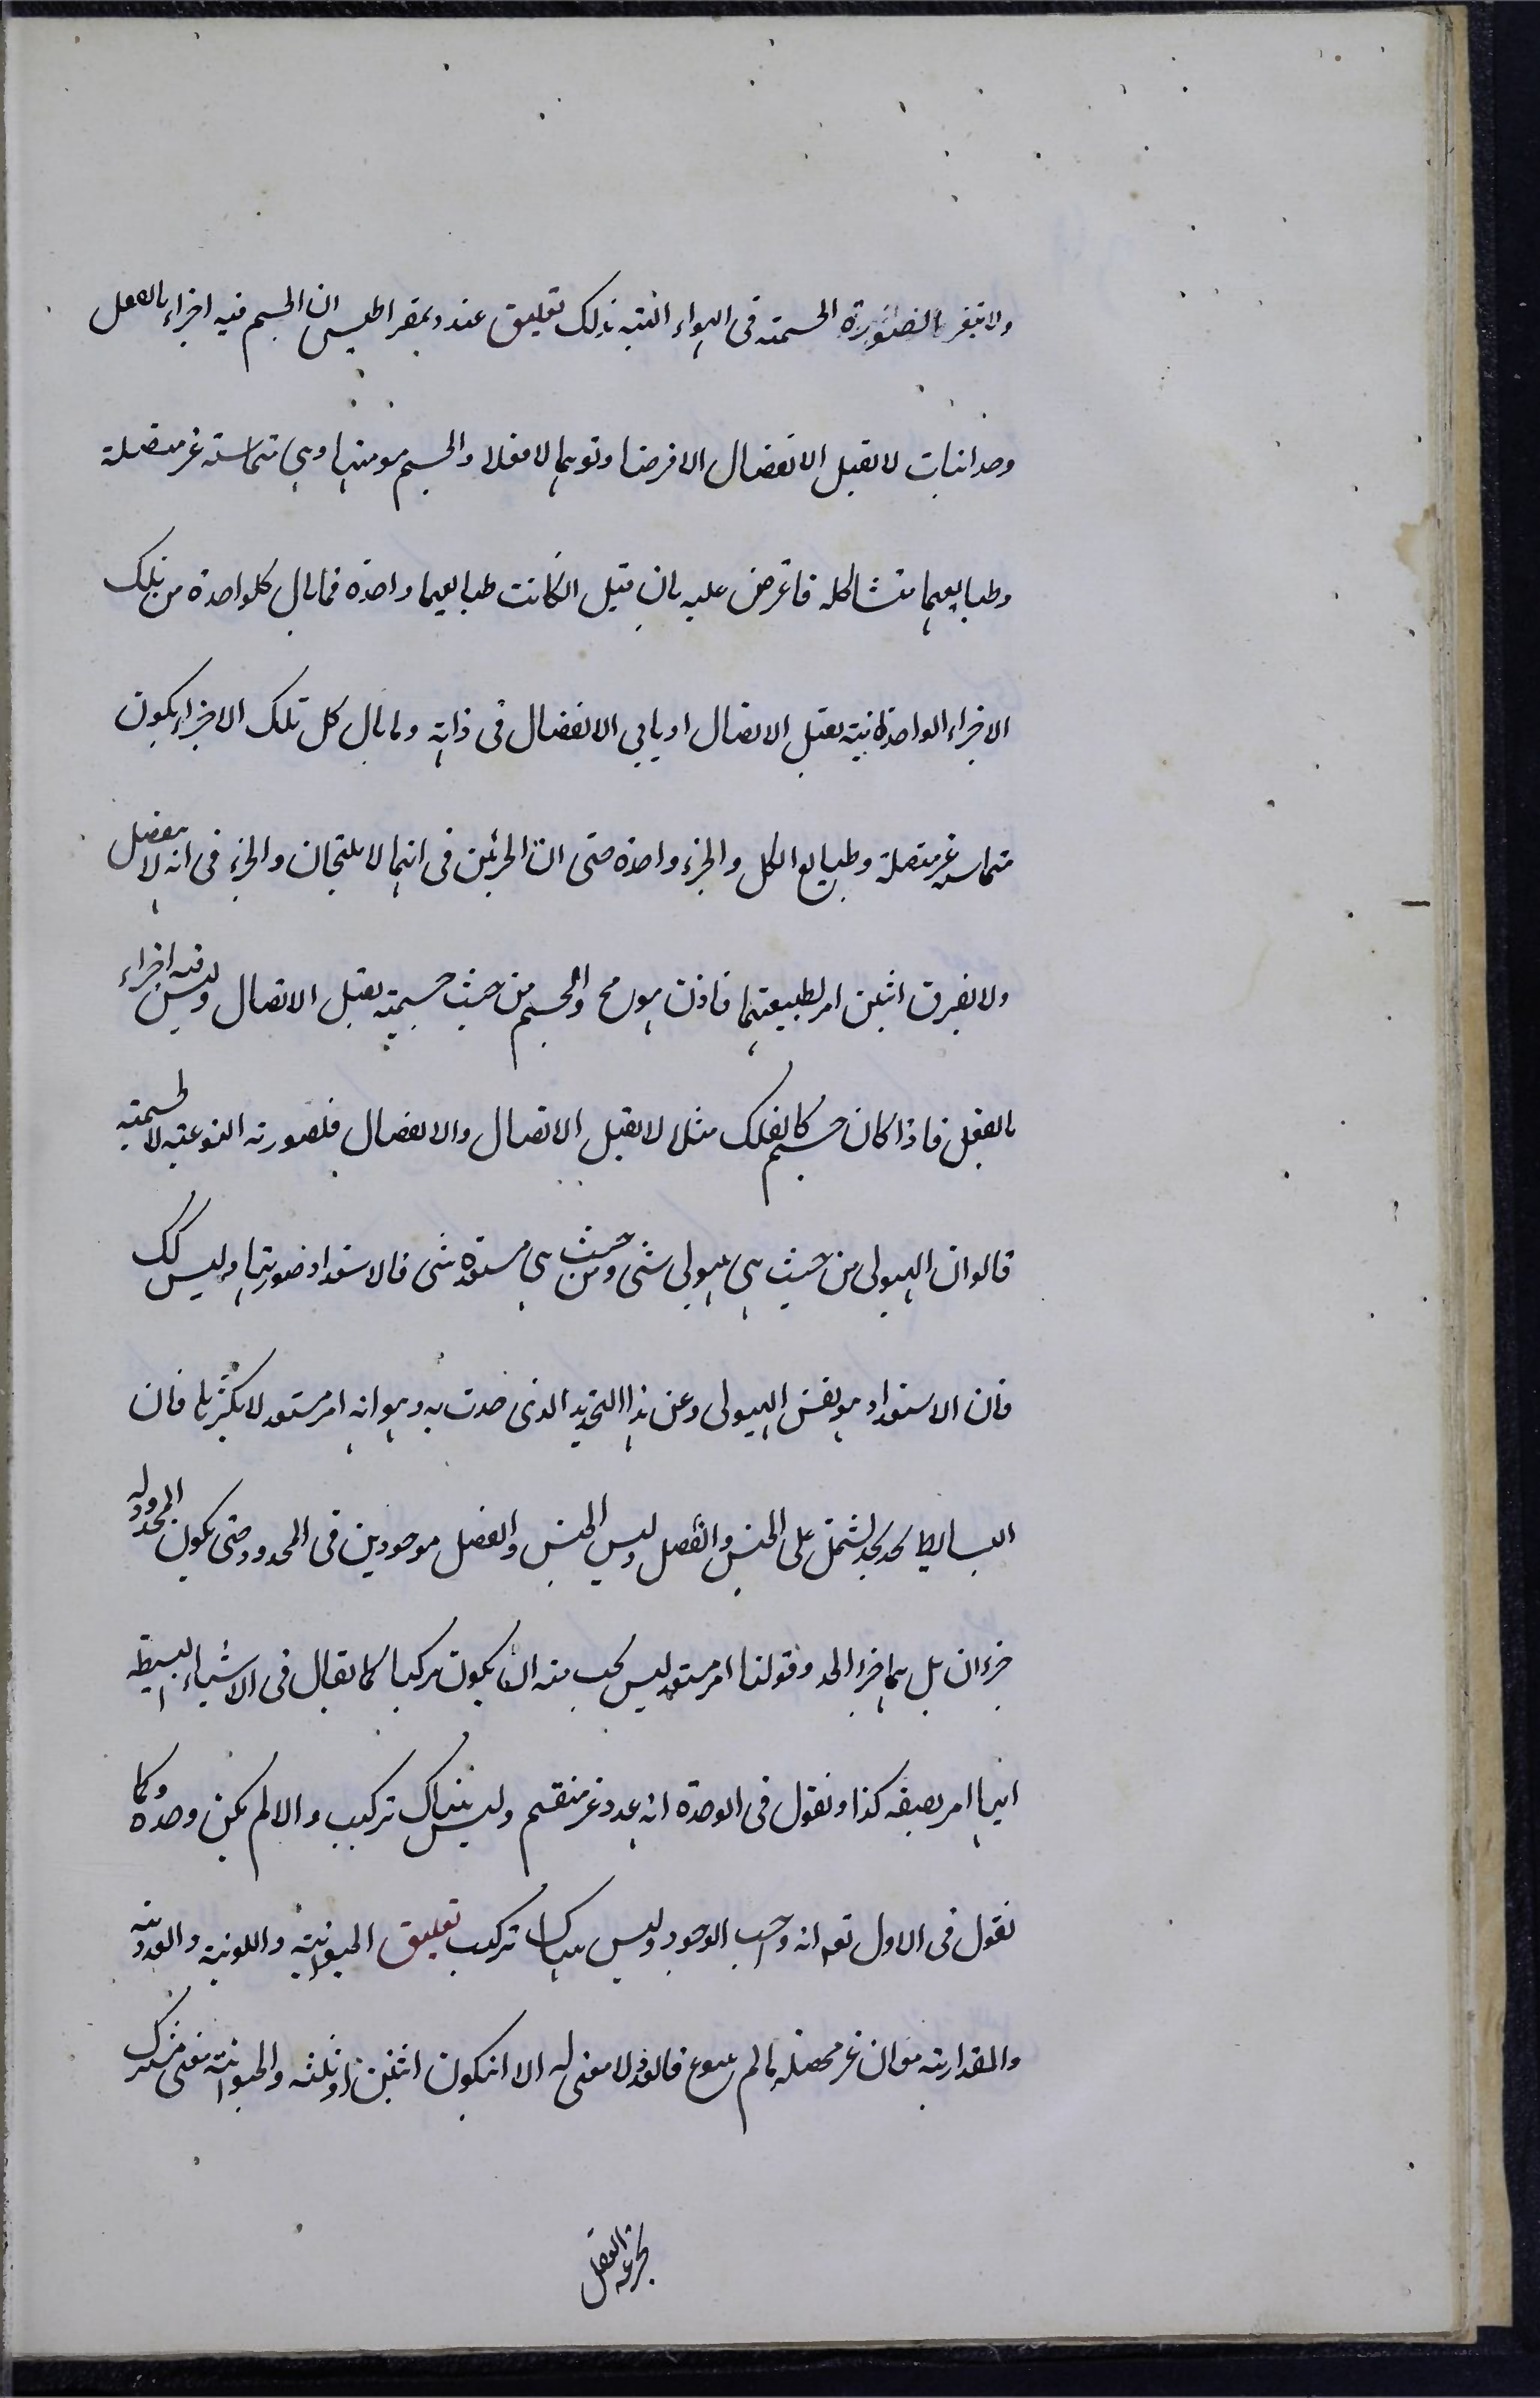 ولا تتغير الصورة الجسمية في الهواء البتة بذلك تعليق عند ديمقراطيس ان الجسم فيه اجزاء بالفعل
وحدانيات لا تقبل الانفصال الا فرضا وتوهما لا فعلا والجسم مولف منها وهي متماسة غير متصلة
وطبايعها متشاكلة فاعترض عليه بان قيل ان كانت طبايعها واحدة فما بال كل واحدة من تلك
الاجزاء الواحدانية يقبل الاتصال او يابى الانفصال في ذاته وما بال كل تلك الاجزاء يكون
متماسة غير متصلة وطبايع الكل والجزء واحدة حتى ان الجزئين في انهما لا يلتحمان والجزء في انه لا ينفصل
ولا يفترق اثنين امر لطبيعتهما فاذن هو مح والجسم من حيث جسميته يقبل الاتصال وليس فيه اجزاء
بالفعل فاذا كان جسم كالفلك مثلا لا يقبل الاتصال والانفصال فلصورته النوعية لا لجسميته
قالوا ان الهيولى من حيث هي هيولى شئ ومن حيث هي مستعدة شئ فالاستعداد صورتها وليس كك
فان الاستعداد هو نفس الهيولى وعن هذا التحديد الذي حدت به وهو انه امر مستعد لا يكثرها فان
البسايط تحد بحد يشتمل على الجنس والفصل وليس الجنس والفصل موجودين في المحدود حتى يكون المحدود له
جزءان بل هما جزء الحد وقولنا امر مستعد ليس يجب منه ان يكون مركبا كما يقال في الاشياء البسيطة
انها امر بصفة كذا ونقول في الوحدة انه عدد غير منقسم وليس هناك تركيب والا لم يكن وحدة وكما
نقول في الاول تعم انه واجب الوجود وليس هناك تركيب تعليق الحيوانية واللونية والعددية
والمقدارية معان غير محصلة ما لم ينوع فالعدد لا معنى له الا ان يكون اثنين او ثلثة والحيوانية معنى مشترك